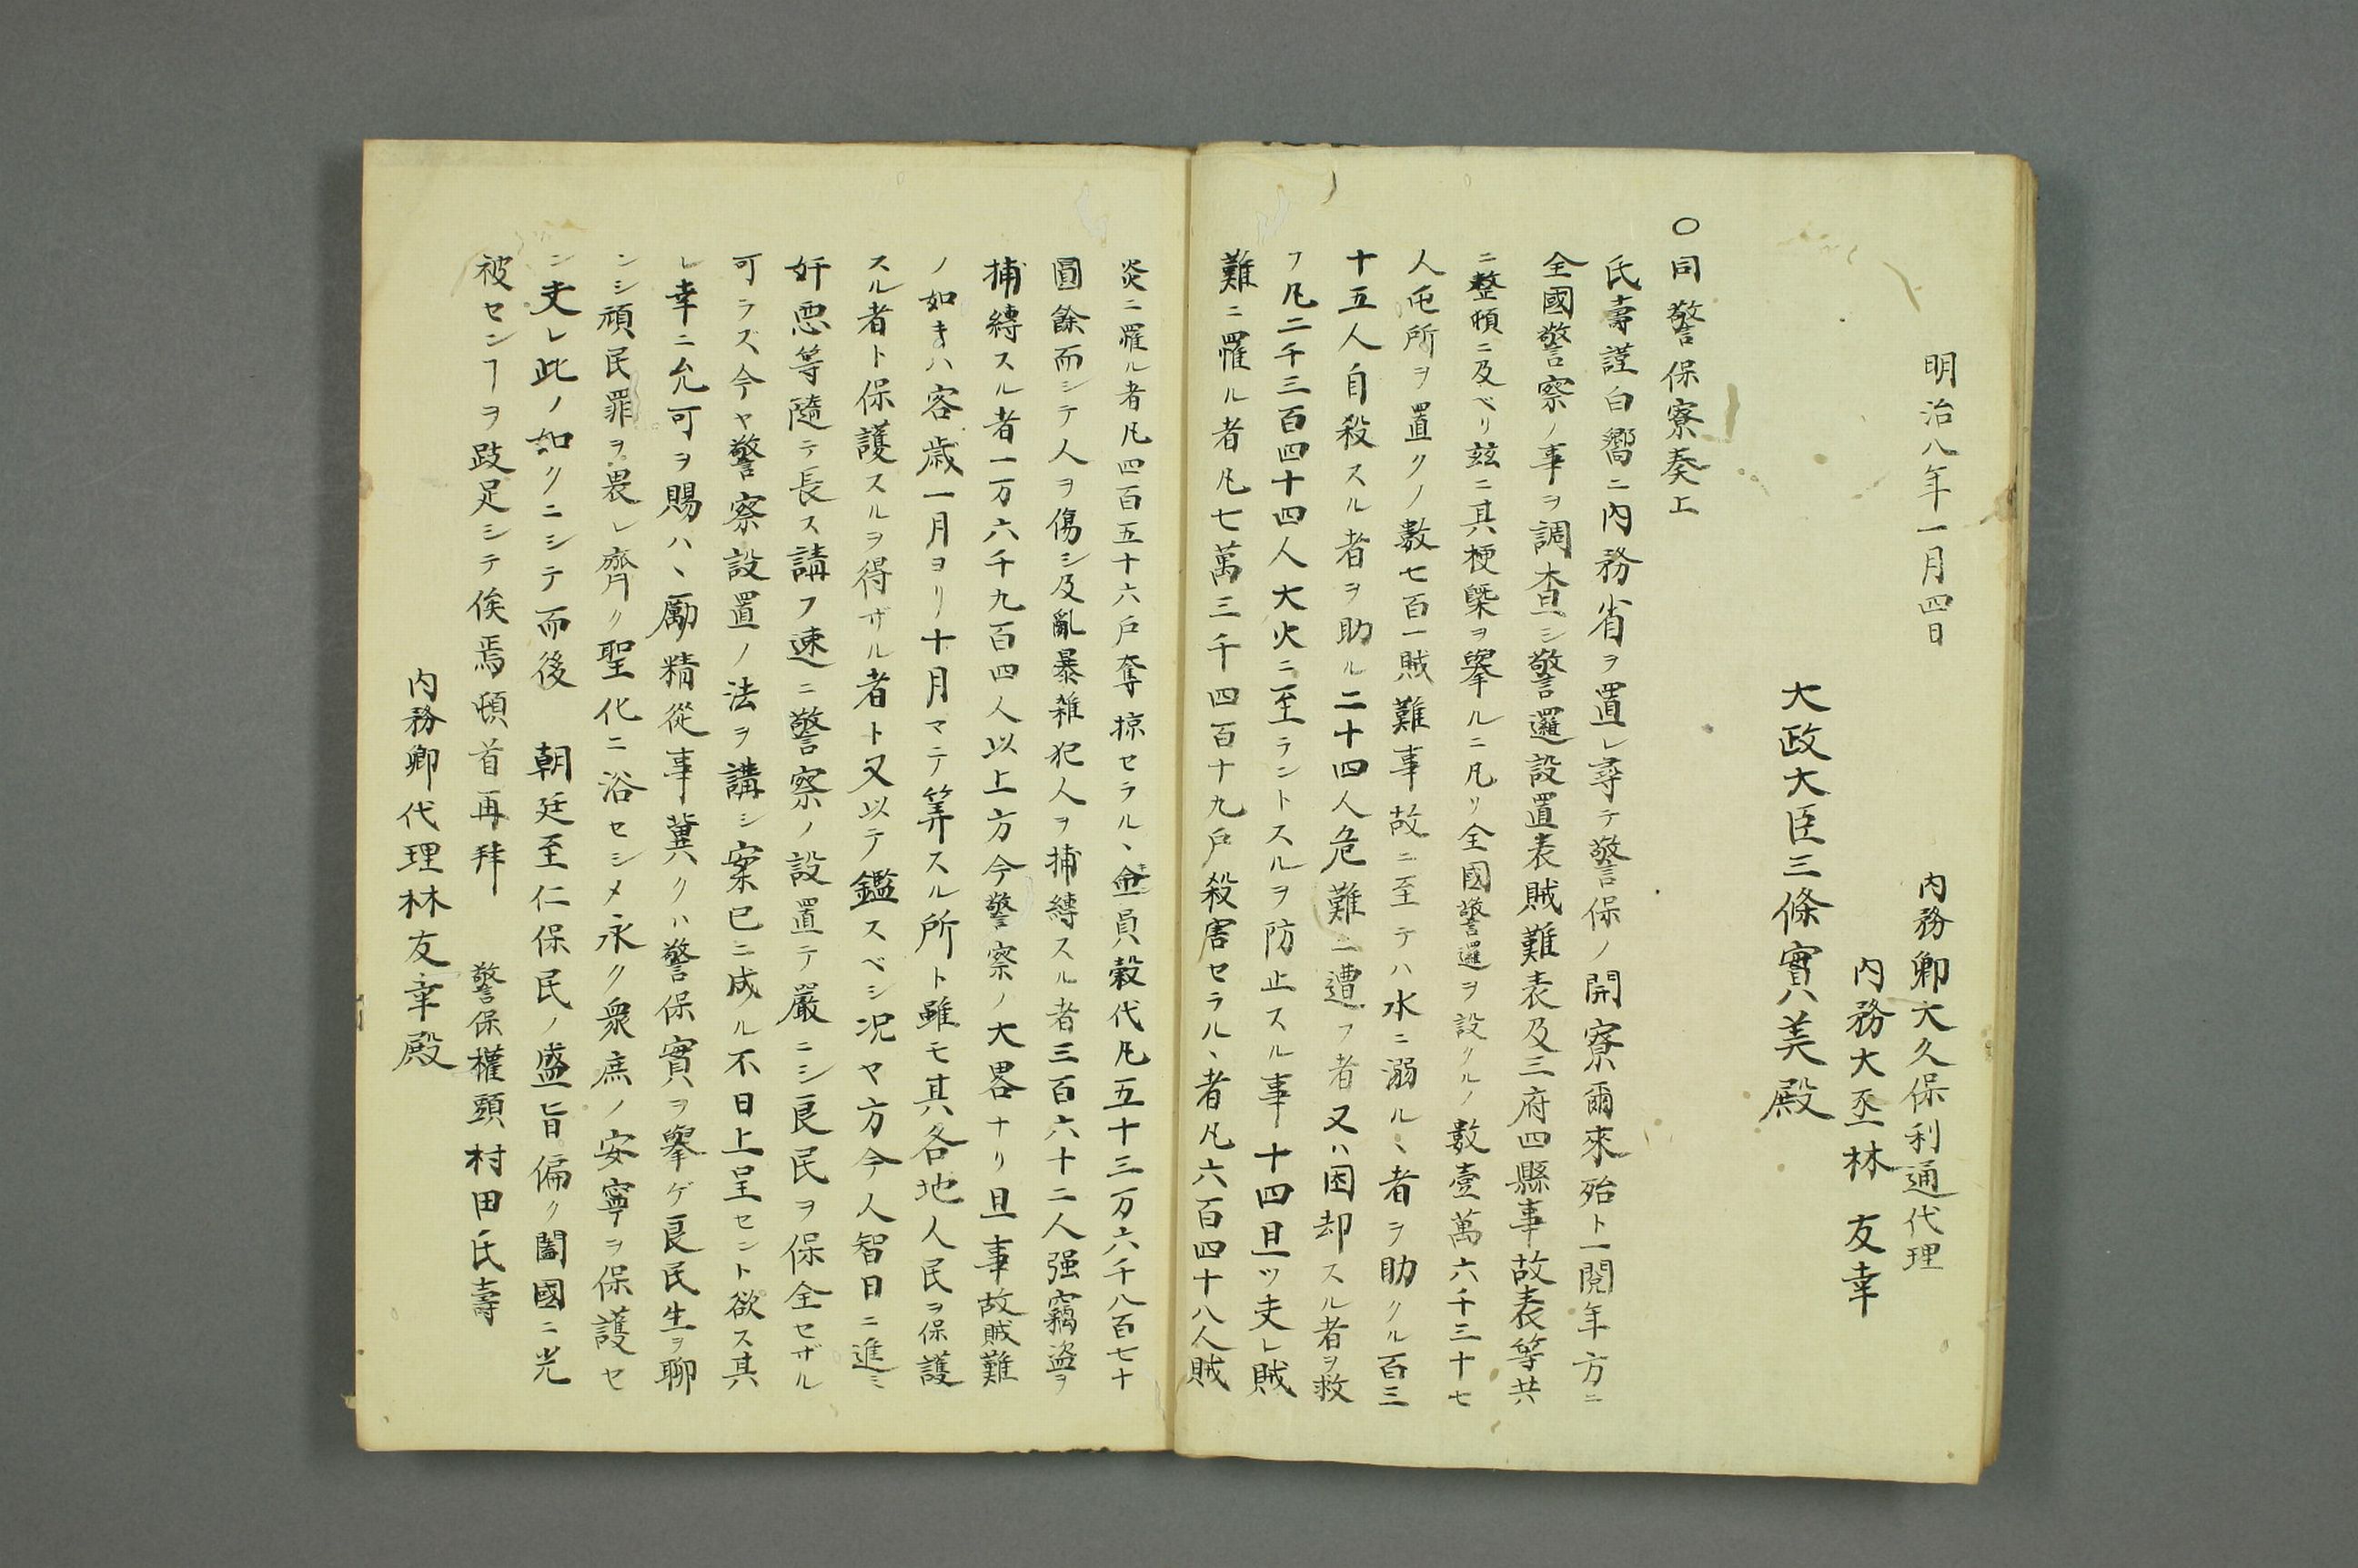 明治八年一月四日
内務卿大久保利通代理
内務大丞林　友幸
大政大臣三條實美殿
〇同警保寮奏上
氏壽謹白嚮ニ内務省ヲ置レ尋テ警保ノ開寮爾來殆ト一閲年方ニ
全國警察ノ事ヲ調査シ警邏設置表賊難表及三府四縣事故表等共
ニ整頓ニ及ベリ玆ニ其梗槩ヲ擧ルニ凡リ全國警邏ヲ設クルノ數壹萬六千三十七
人屯所ヲ置クノ數七百一賊難事故ニ至テハ水ニ溺ルヽ者ヲ助クル百三
十五人自殺スル者ヲ助ル二十四人危難ニ遭フ者又ハ困却スル者ヲ救
フ凡二千三百四十四人大火ニ至ラントスルヲ防止スル事十四且ツ夫レ賊
難ニ罹ル者凡七萬三千四百十九戸殺害セラルヽ者凡六百四十八人賊
炎ニ罹ル者凡四百五十六戸奪掠セラルヽ金員穀代凡五十三万六千八百七十
圓餘而シテ人ヲ傷シ及亂暴雑犯人ヲ捕縛スル者三百六十二人强竊盗ヲ
捕縛スル者一万六千九百四人以上方今警察ノ大畧ナリ且事故賊難
ノ如キハ客歳一月ヨリ十月マテ筭スル所ト雖モ其各地人民ヲ保護
スル者ト保護スルヲ得ザル者ト又以テ鑑スベシ况ヤ方今人智日ニ進ミ
奸悪等隨テ長ス請フ速ニ警察ノ設置テ嚴ニシ良民ヲ保全セザル
可ラズ今ヤ警察設置ノ法ヲ講シ案已ニ成ル不日上呈セント欲ス其
レ幸ニ允可ヲ賜ハヽ勵精從事冀クハ警保實ヲ擧ゲ良民生ヲ聊
ンシ頑民罪ヲ畏レ齊ク聖化ニ浴セシメ永ク衆庶ノ安寧ヲ保護セ
ン夫レ此ノ如クニシテ而後　朝廷至仁保民ノ盛旨偏ク闔國ニ光
被センヿヲ跂足シテ俟焉頓首再拜　警保權頭村田氏壽
内務卿代理林友幸殿